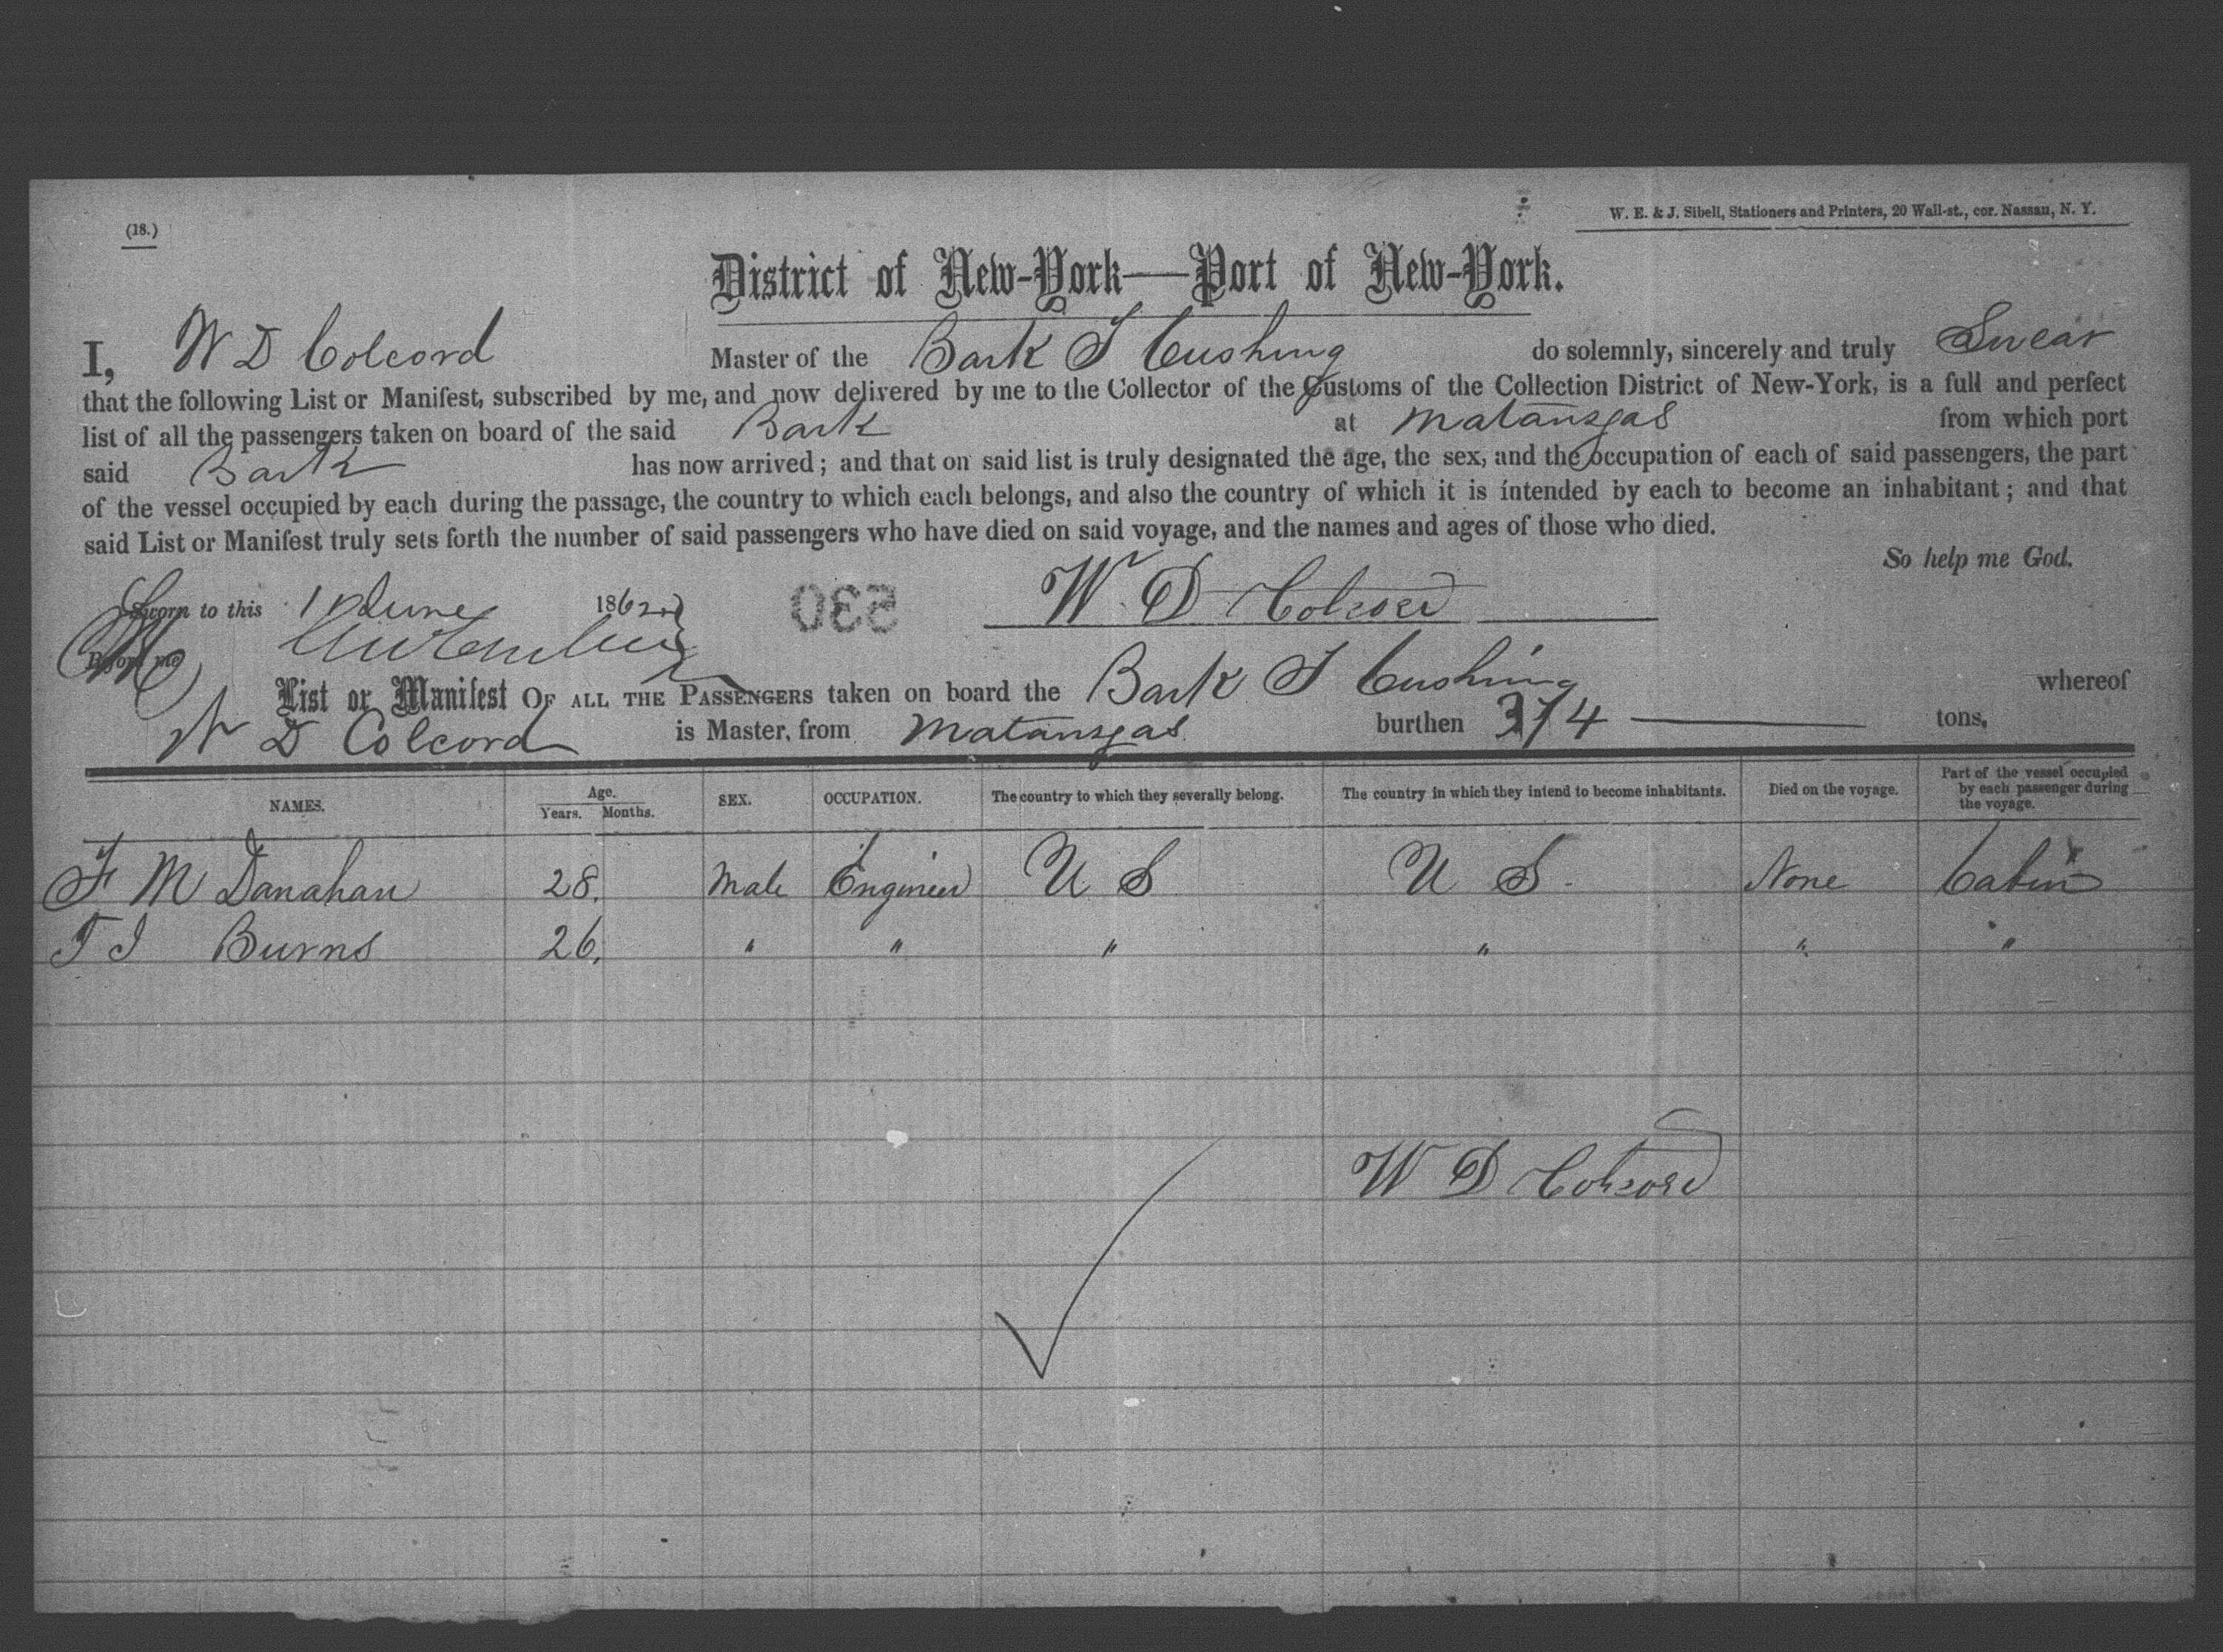 (18.)
W. E. & J. Sibell, Stationers and Printers, 20 Wall-st., cor. Nassau, N. Y.
District of New-York—Port of New-York.
I, W D Colcord Master of the Bark J Cushing do solemnly, sincerely and truly Swear
that the following List or Manifest, subscribed by me, and now delivered by me to the Collector of the Customs of the Collection District of New-York, is a full and perfect
list of all the passengers taken on board of the said Bark at Matanzgas from which port
said Bark has now arrived; and that on said list is truly designated the age, the sex, and the occupation of each of said passengers, the part
of the vessel occupied by each during the passage, the country to which each belongs, and also the country of which it is intended by each to become an inhabitant; and that
said List or Manifest truly sets forth the number of said passengers who have died on said voyage, and the names and ages of those who died.
So help me God.
Sworn to this June 1862 530 W. D Colcord
Before me
List or Manifest OF ALL THE PASSENGERS taken on board the Bark J Cushing whereof
W D Colcord is Master, from Matanzgas burthen 374 tons,
NAMES. Age. Years. Months. SEX. OCCUPATION. The country to which they severally belong. The country in which they intend to become inhabitants. Died on the voyage. Part of the vessel occupied by each passenger during the voyage.
F M Danahan 28. Male Engineer U S U S. None Cabin
T J Burns 26. " " " " " "
W D Colcord